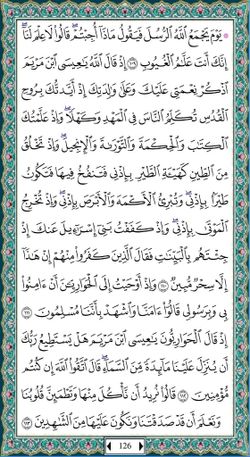 ۞ يَوْمَ يَجْمَعُ اللَّهُ الرُّسُلَ فَيَقُولُ مَاذَا أُجِبْتُمْ ۖ قَالُوا لَا عِلْمَ لَنَا ۖ
إِنَّكَ أَنتَ عَلَّامُ الْغُيُوبِ ﴿١٠٩﴾ إِذْ قَالَ اللَّهُ يَا عِيسَى ابْنَ مَرْيَمَ
اذْكُرْ نِعْمَتِي عَلَيْكَ وَعَلَىٰ وَالِدَتِكَ إِذْ أَيَّدتُّكَ بِرُوحِ
الْقُدُسِ تُكَلِّمُ النَّاسَ فِي الْمَهْدِ وَكَهْلًا ۖ وَإِذْ عَلَّمْتُكَ
الْكِتَابَ وَالْحِكْمَةَ وَالتَّوْرَاةَ وَالْإِنجِيلَ ۖ وَإِذْ تَخْلُقُ
مِنَ الطِّينِ كَهَيْئَةِ الطَّيْرِ بِإِذْنِي فَتَنفُخُ فِيهَا فَتَكُونُ
طَيْرًا بِإِذْنِي ۖ وَتُبْرِئُ الْأَكْمَهَ وَالْأَبْرَصَ بِإِذْنِي ۖ وَإِذْ تُخْرِجُ
الْمَوْتَىٰ بِإِذْنِي ۖ وَإِذْ كَفَفْتُ بَنِي إِسْرَائِيلَ عَنكَ إِذْ
جِئْتَهُم بِالْبَيِّنَاتِ فَقَالَ الَّذِينَ كَفَرُوا مِنْهُمْ إِنْ هَٰذَا
إِلَّا سِحْرٌ مُّبِينٌ ﴿١١٠﴾ وَإِذْ أَوْحَيْتُ إِلَى الْحَوَارِيِّينَ أَنْ آمِنُوا
بِي وَبِرَسُولِي قَالُوا آمَنَّا وَاشْهَدْ بِأَنَّنَا مُسْلِمُونَ ﴿١١١﴾
إِذْ قَالَ الْحَوَارِيُّونَ يَا عِيسَى ابْنَ مَرْيَمَ هَلْ يَسْتَطِيعُ رَبُّكَ
أَن يُنَزِّلَ عَلَيْنَا مَائِدَةً مِّنَ السَّمَاءِ ۖ قَالَ اتَّقُوا اللَّهَ إِن كُنتُم
مُّؤْمِنِينَ ﴿١١٢﴾ قَالُوا نُرِيدُ أَن نَّأْكُلَ مِنْهَا وَتَطْمَئِنَّ قُلُوبُنَا
وَنَعْلَمَ أَن قَدْ صَدَقْتَنَا وَنَكُونَ عَلَيْهَا مِنَ الشَّاهِدِينَ ﴿١١٣﴾
126